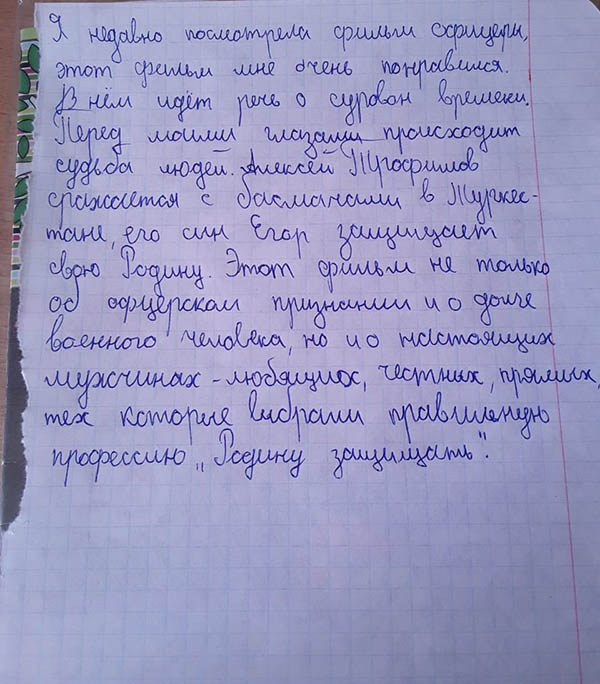 Я недавно посмотрела фильм Офицеры,
этот фильм мне очень понравился.
В нём идёт речь о суровом времени.
Перед моими глазами происходит
судьба людей. Алексей Трофимов
сражается с басмачами в Туркес-
тане, его сын Егор защищает
свою Родину. Этот фильм не только
об офцерском признании и о долге
военного человека, но и о настоящих
мужчинах - любящих, честных, прямых,
тех которые выбрали правильную
профессию „Родину защищать".